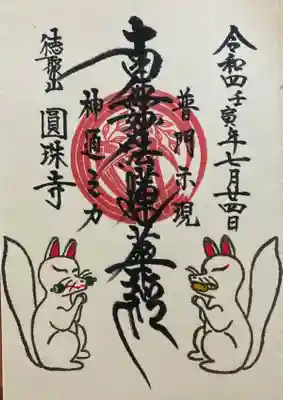 令和四壬寅年七月廿四日
普門示現
南無妙法蓮華経
神通之力
徳聚山
圓珠寺